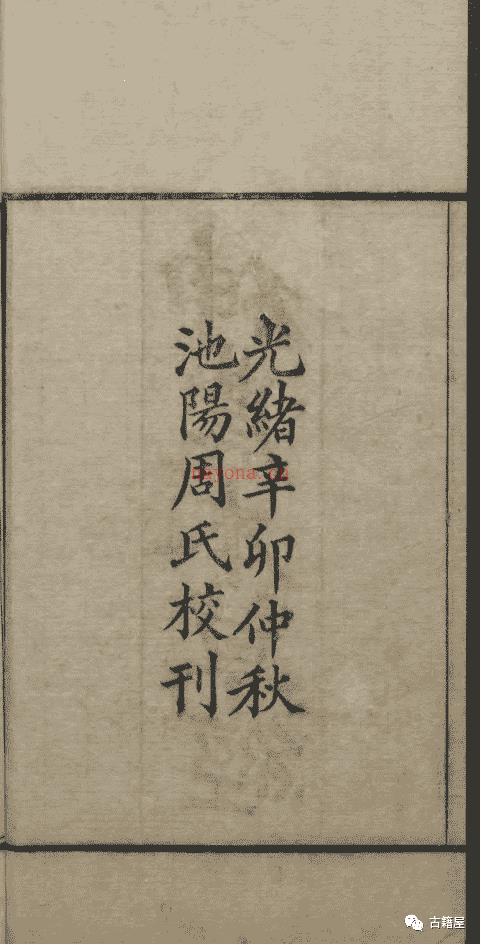 光緒辛卯仲秋
池陽周氏校刊
古籍屋